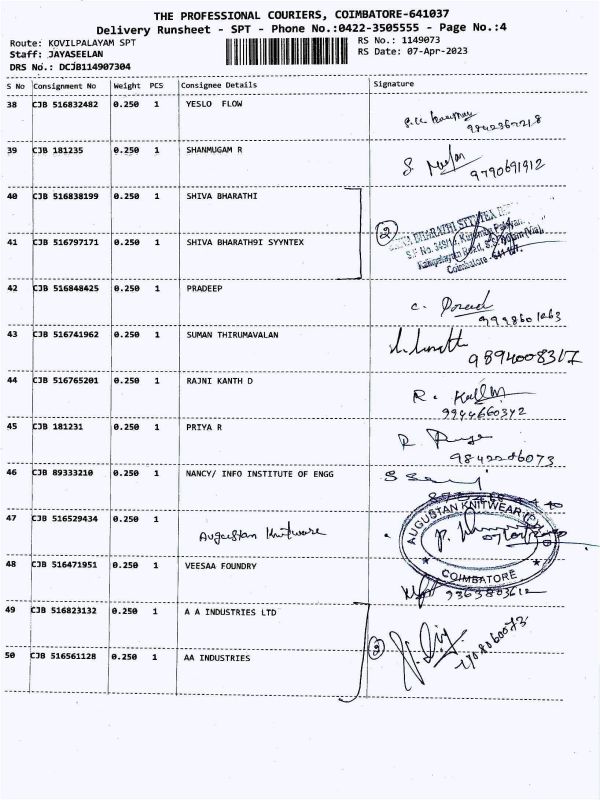 THE PROFESSIONAL COURIERS, COIMBATORE-641037
Delivery Runsheet - SPT - Phone No.:0422-3505555 - Page No.:4
Route: KOVILPALAYAM SPT RS No.: 1149073
Staff: JAYASEELAN RS Date: 07-Apr-2023
DRS No.: DCJB114907304
S No Consignment No Weight PCS Consignee Details Signature
38 CJB 516832482 0.250 1 YESLO FLOW
39 CJB 181235 0.250 1 SHANMUGAM R
9790691912
40 CJB 516838199 0.250 1 SHIVA BHARATHI
41 CJB 516797171 0.250 1 SHIVA BHARATH9I SYYNTEX
2
Coimbatore
42 CJB 516848425 0.250 1 PRADEEP
43 CJB 516741962 0.250 1 SUMAN THIRUMAVALAN
44 CJB 516765201 0.250 1 RAJNI KANTH D
R.
9944660342
45 CJB 181231 0.250 1 PRIYA R
R
46 CJB 89333210 0.250 1 NANCY/ INFO INSTITUTE OF ENGG
47 CJB 516529434 0.250 1 Augustan Knitware
AUGUSTAN KNITWEAR
COIMBATORE
48 CJB 516471951 0.250 1 VEESAA FOUNDRY
9363803612
49 CJB 516823132 0.250 1 A A INDUSTRIES LTD
2
50 CJB 516561128 0.250 1 AA INDUSTRIES